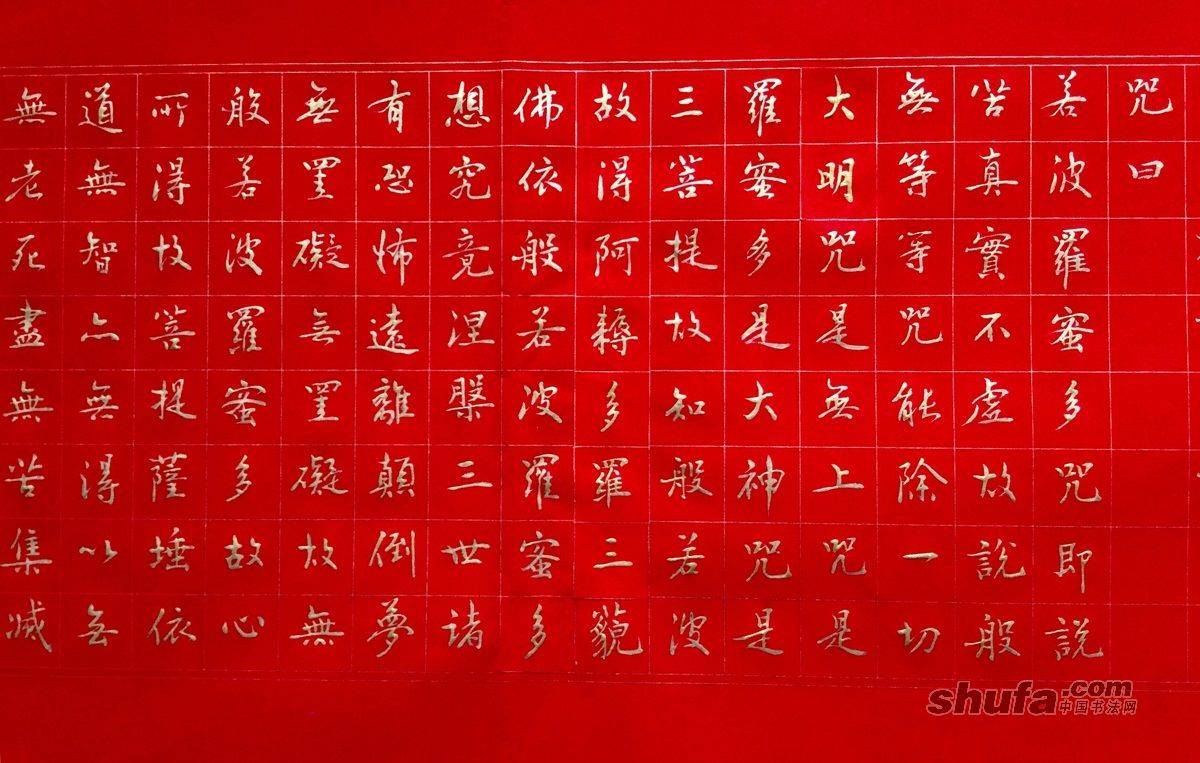 無老死盡無苦集滅
道無智亦無得以無
所得故菩提薩埵依
般若波羅蜜多故心
無罣礙無罣礙故無
有恐怖遠離顛倒夢
想究竟涅槃三世諸
佛依般若波羅蜜多
故得阿耨多羅三藐
三菩提故知般若波
羅蜜多是大神咒是
大明咒是無上咒是
無等等咒能除一切
苦真實不虛故說般
若波羅蜜多咒即說
咒曰
shufa.com
中国书法网